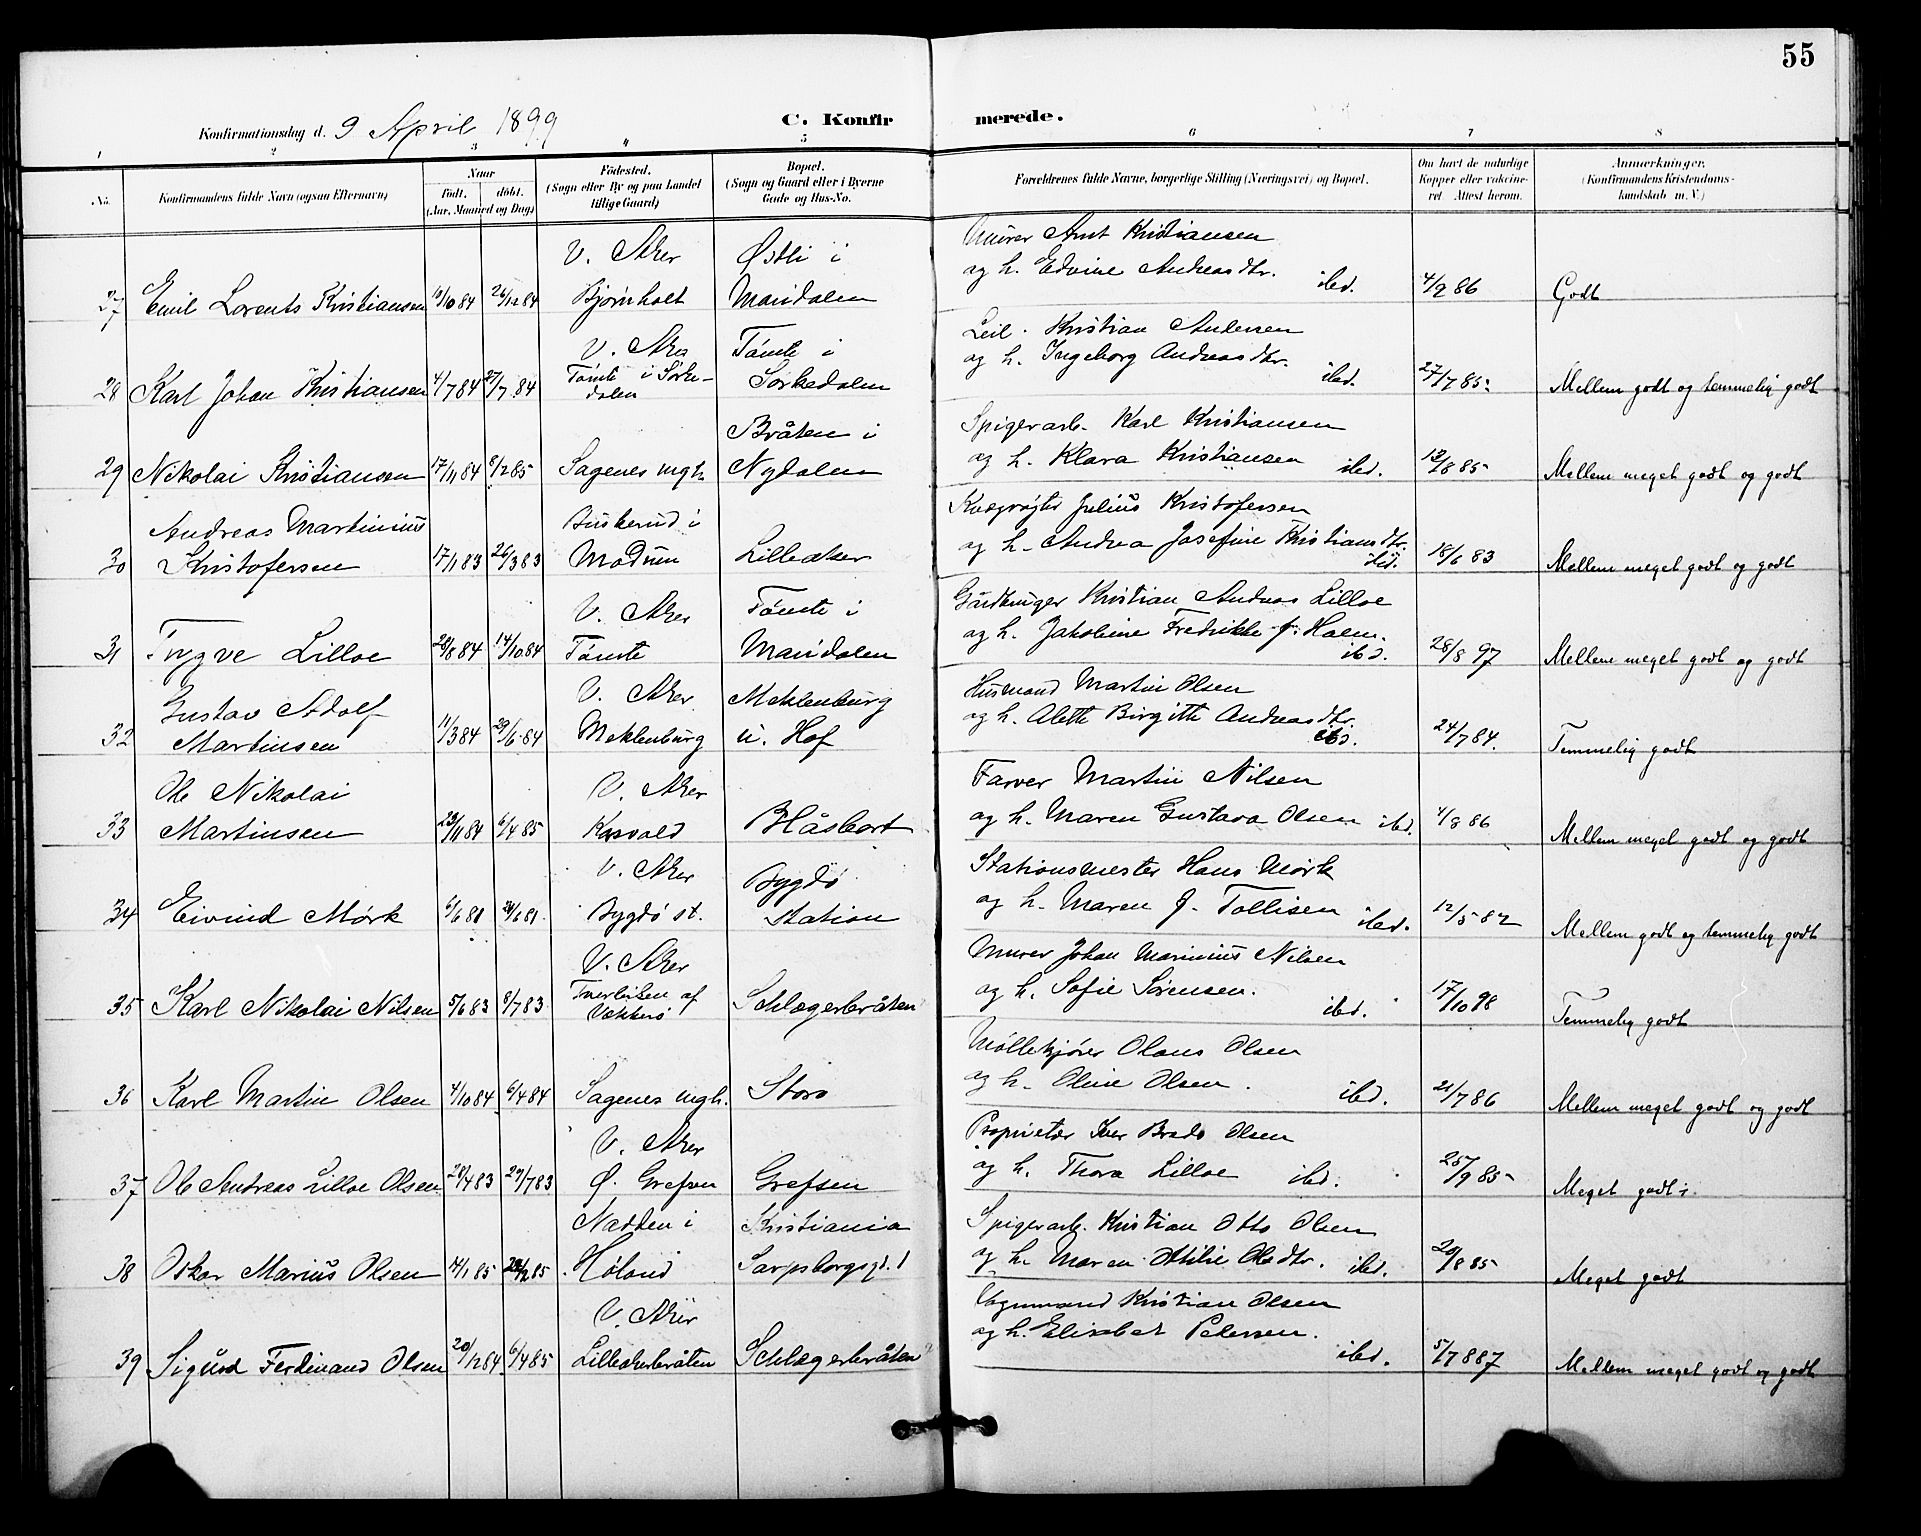 55
Konfirmationsdag d. 9 April 1899
C. Konfirmerede.
1 2 3 4 5 6 7 8
No.
Konfirmandens fulde Navn (ogsaa Efternavn)
Naar
født. døbt.
(Aar, Maaned og Dag)
Fødested.
(Sogn eller By og paa Landet
tillige Gaard)
Bopæl.
(Sogn og Gaard eller i Byerne
Gade og Hus-No.
Forældrenes fulde Navne, borgerlige Stilling (Næringsvei) og Bopæl.
Om havt de naturlige
Kopper eller vakcine-
ret. Attest herom.
Anmærkninger.
(Konfirmandens Kristendoms-
kundskab m. V.)
V. Aker Østli i Murer Arnt Kristiansen
og h. Edvine Andreasdtr.
27 Emil Lorents Kristiansen 10/10 84 26/12 84 Bjørnholt Maridalen ibd. 4/9 86 Godt
V. Aker Tømte i Leil. Kristian Andersen
og h. Ingeborg Andreasdtr.
28 Karl Johan Kristiansen 4/7 84 27/7 84 Tømte i Sørke-
dalen Sørkedalen ibd. 27/7 85 Mellem godt og temmelig godt
Bråten i Spigerarb. Karl Kristiansen
29 Nikolai Kristiansen 17/11 84 8/2 85 Sagenes mgh. Nydalen og h. Klara Kristiansen ibd. 13/8 85 Mellem meget godt og godt
Andreas Martinius Buskerud i Kvægrøgter Julius Kristofersen
30 Kristofersen 17/1 83 26/3 83 Modum Lilleaker og h. Andrea Josefine Kristiansdtr.
ibd. 18/6 83 Mellem meget godt og godt
V. Aker Tømte i Gårdbruger Kristian Andreas Lilloe
31 Trygve Lilloe 28/8 84 14/10 84 Tømte Maridalen og h. Jakobine Fredrikke f. Holm.
ibd. 28/8 97 Mellem meget godt og godt
Gustav Adolf V. Aker Meklenburg Husmand Martin Olsen
32 Martinsen 11/3 84 29/6 84 Meklenburg u. Hof og h. Alette Birgitte Andreasdtr.
ibd. 24/7 84. Temmelig godt
Ole Nikolai V. Aker Farver Martin Nilsen
33 Martinsen 23/11 84 6/4 85 Korsvold Blåsbort og h. Maren Gustava Olsen ibd. 4/8 86 Mellem meget godt og godt
V. Aker Bygdø Stationsmester Hans Mørk
34 Eivind Mørk Bygdø st. Station og h. Maren J. Tollisen ibd. 12/5 82 Mellem godt og temmelig godt
V. Aker Murer Johan Marinius Nilsen
35 Karl Nikolai Nilsen 5/6 83 8/7 83 af
Vækkerø Schlægerbråten og h. Sofie Sørensen. ibd. 17/10 98 Temmelig godt
Møllekjører Olaus Olsen
36 Karl Martin Olsen 4/10 84 6/4 84 Sagenes mgh. Storo og h. Oline Olsen. ibd. 21/7 86 Mellem meget godt og godt
V. Aker Proprietær Iver Brede Olsen
37 Ole Andreas Lilloe Olsen 28/4 83 29/7 83 Ø. Grefsen Grefsen og h. Thora Lilloe ibd. 25/9 85 Meget godt.
Nadden i Kristiania Spigerarb. Kristian Otto Olsen
38 Oskar Marius Olsen 14/1 85 Høland Sarpsborggd. 1 og h. Maren Otilie Olsdtr. ibd. 20/8 85 Meget godt
V. Aker Vognmand Kristian Olsen
og h. Elisabet Petersen.
39 Sigurd Ferdinand Olsen 20/12 84 6/4 85 Lilleakerbråten Schlægerbråten ibd. 5/7 887 Mellem meget godt og godt